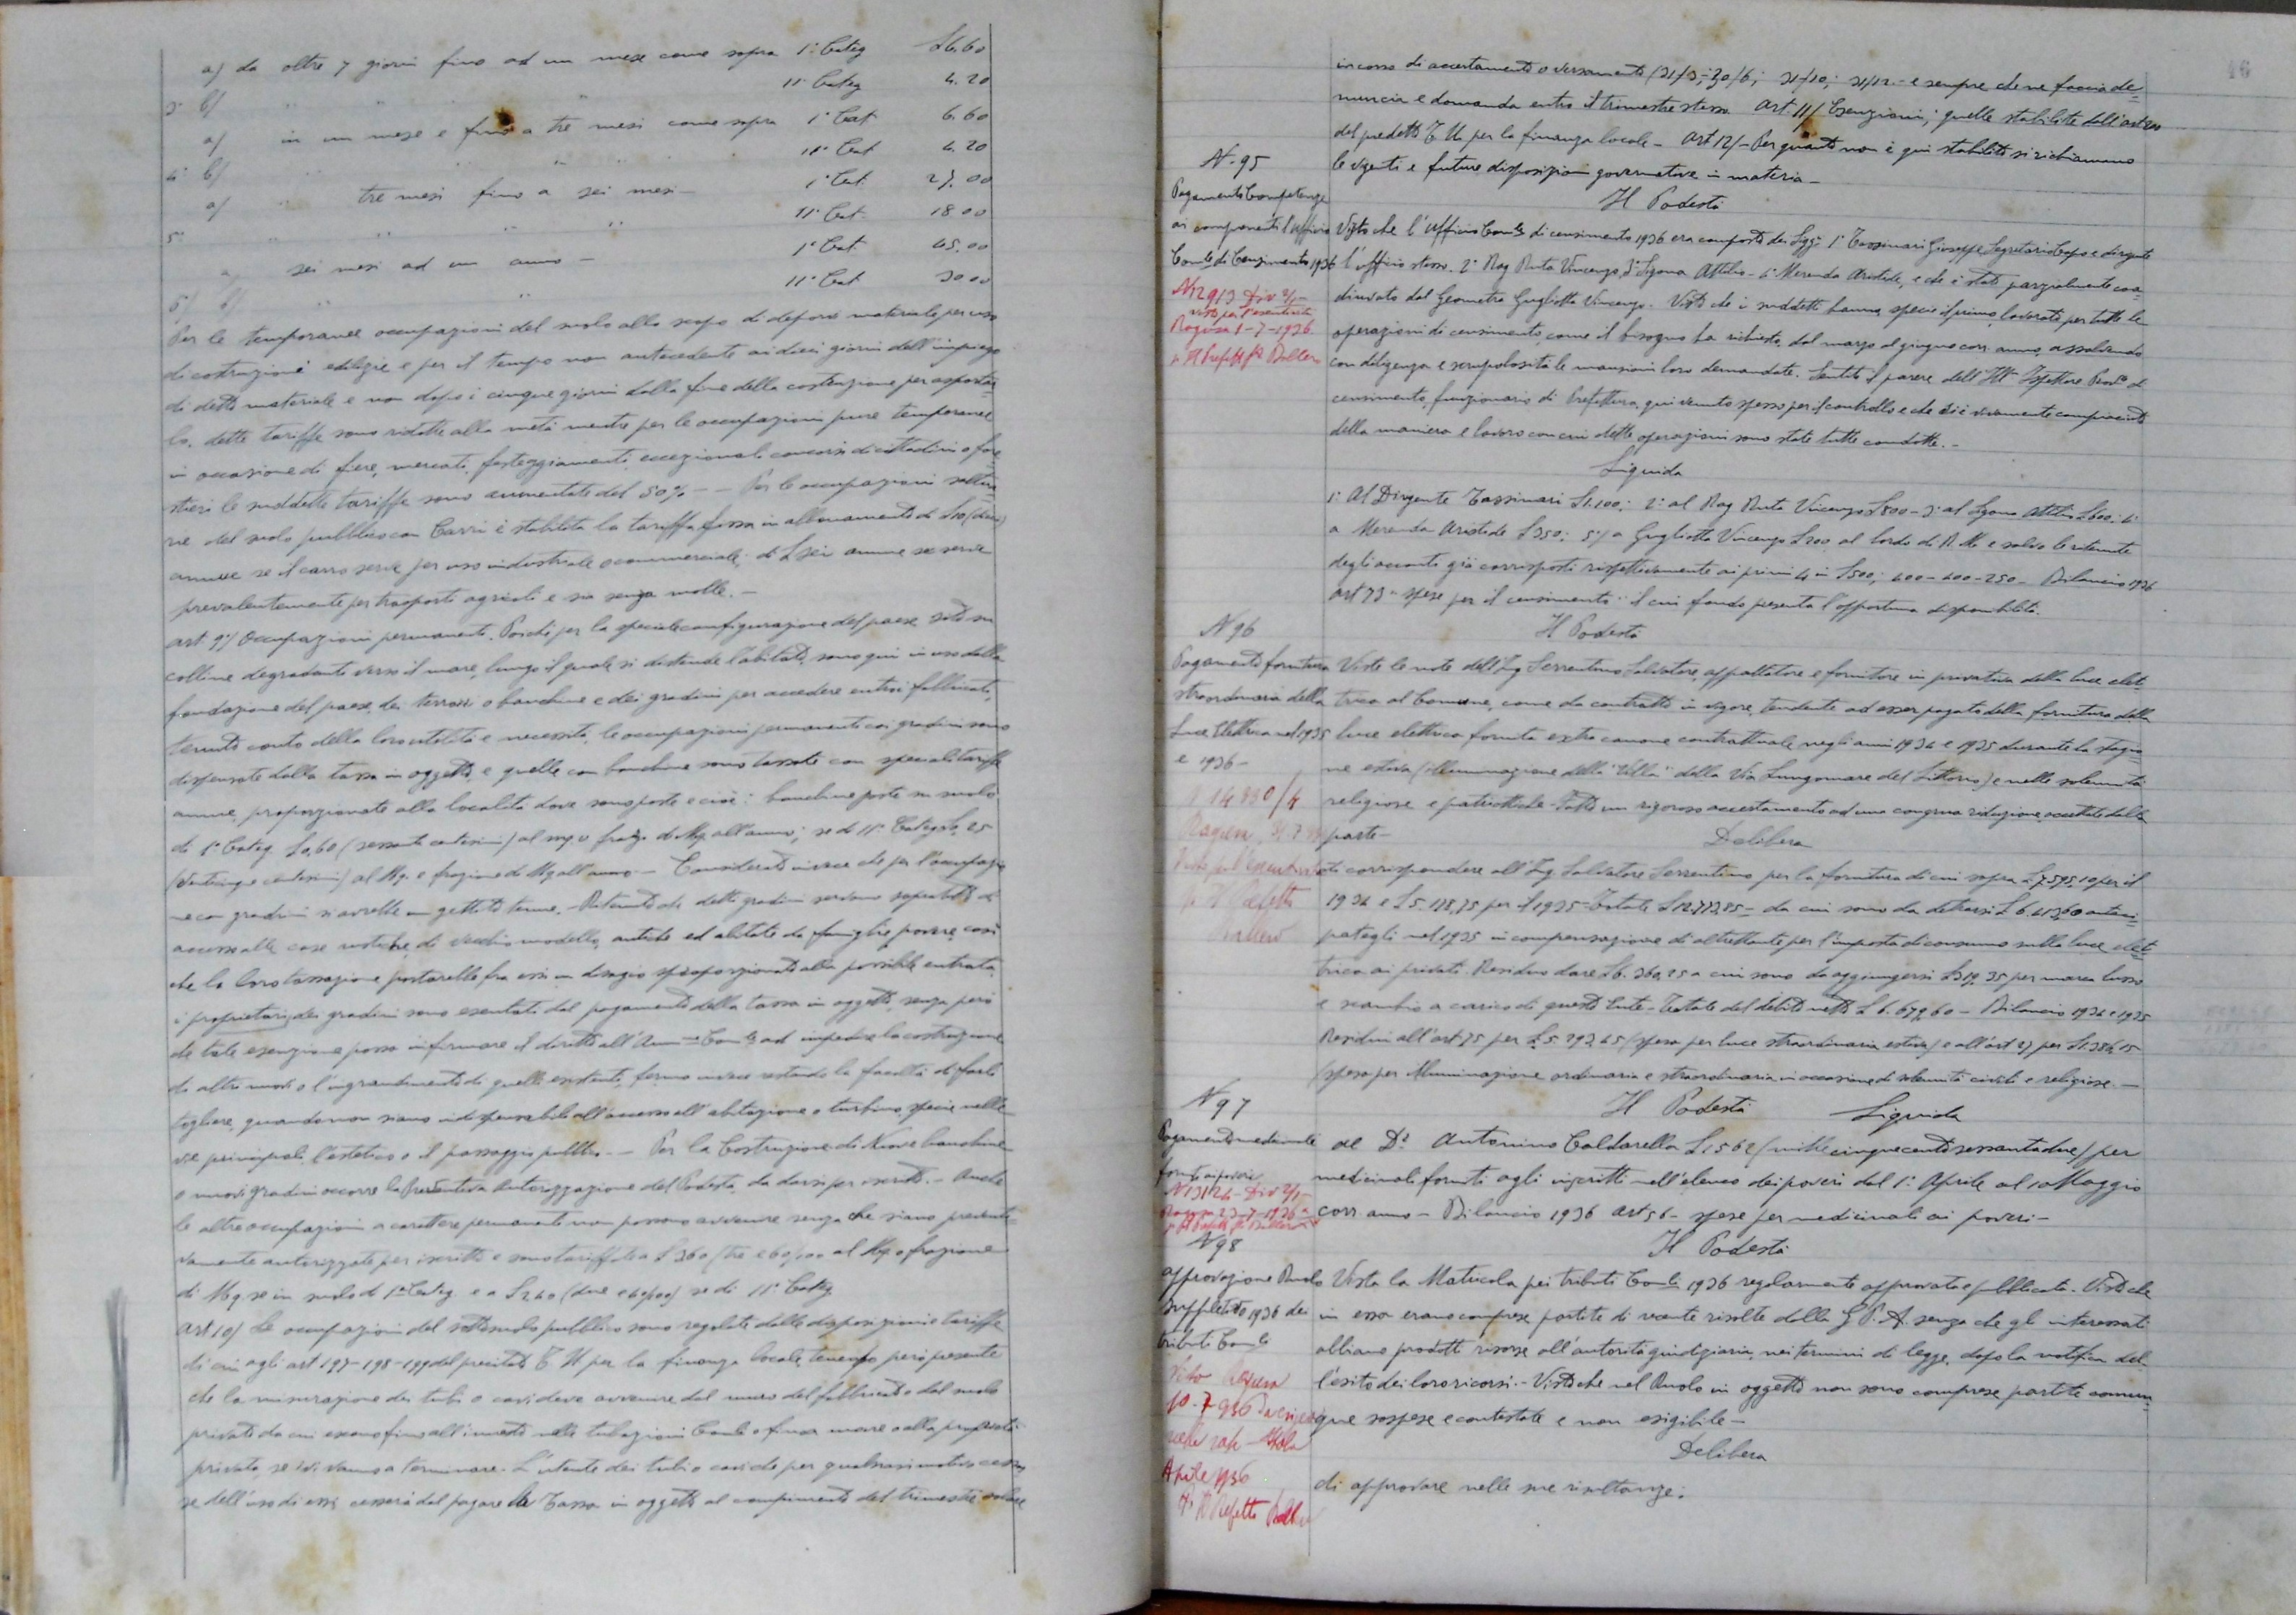 a) da oltre 7 giorni fino ad un mese come sopra 1ª Categ £6.60
3° b) " " " " 11ª Categ 4.20
a) in un mese e fino a tre mesi come sopra 1ª Cat. 6.60
4° b) " " " " 11ª Cat 4.20
a) " tre mesi fino a sei mesi - 1ª Cat. 27.00
5° " " " " 11ª Cat. 18.00
a) sei mesi ad un anno - 1ª Cat. 45.00
6°) b) " " 11ª Cat 30.00
Per le temporanee occupazioni del suolo allo scopo di deporre materiale per uso
di costruzioni edilizie e per il tempo non antecedente ai dieci giorni dell'impiego
di detto materiale e non dopo i cinque giorni dalla fine della costruzione per asportar=
lo, dette tariffe sono ridotte alla metà mentre per le occupazioni pure temporanee
in occasione di fiere, mercati, festeggiamenti, eccezionali concorsi di cittadini o fore
stieri le suddette tariffe sono aumentate del 50% - - Per le occupazioni
del suolo pubblico con Carri è stabilita la tariffa fissa in abbonamento di £10 (dieci)
annue se il carro serve per uso industriale o commerciale; di £ sei annue se serve
prevalentemente per trasporti agricoli e sia senza molle. -
Art. 9°) Occupazioni permanenti. Poichè per la speciale configurazione del paese sito su
colline degradanti verso il mare, lungo il quale si distende l'abitato, sono qui in uso dalla
fondazione del paese, dei terrazzi o banchine e dei gradini per accedere entro i fabbricati,
tenuto conto della loro utilità e necessità, le occupazioni permanenti con gradini sono
dispensate dalla tassa in oggetto, e quelle con banchine sono tassate con speciali tariffe
annue, proporzionate alla località dove sono poste e cioè: banchine poste su suolo
di 1ª Categ. £0,60 (sessanta centesimi) al mq. o fraz. di Mq. all'anno; se di 11ª Categ £0,25
(venticinque centesimi) al Mq. o frazione di Mq all'anno. - Considerato invece che per l'occupazio
ne con gradini si avrebbe un gettito tenue. - Ritenuto che detti gradini servono soprattutto di
accesso alle case rustiche, di vecchio modello, antiche ed abitate da famiglie povere, così
che la loro tassazione porterebbe fra essi un disagio sproporzionato alla possibile entrata,
i proprietari dei gradini sono esentati dal pagamento della tassa in oggetto, senza però
che tale esenzione possa infirmare il diritto all'Amm.ne Com.le ad impedire la costruzione
di altri nuovi o l'ingrandimento di quelli esistenti, fermo invece restando la facoltà di farli
togliere, quando non siano indispensabili all'accesso all'abitazione o turbino, specie nelle
vie principali, l'estetica o il passaggio pubblico. - - Per la Costruzione di Nuove banchine
o nuovi gradini occorre la Preventiva Autorizzazione del Podestà, da darsi per iscritto. - Anche
le altre occupazioni a carattere permanente non possono avvenire senza che siano preventi=
vamente autorizzate per iscritto e sono tariffate a £3,60 (tre e 60/100 al Mq. o frazione
di Mq. se in suolo di 1ª Categ. e a £2,40 (due e 40/100) se di 11ª Categ
Art 10) Le occupazioni del sottosuolo pubblico sono regolate dalle disposizioni e tariffe
di cui agli art 197-198-199 del precitato T.U per la finanza locale tenendo però presente
che la misurazione dei tubi o cavi deve avvenire dal muro del fabbricato o dal suolo
privato da cui escono fino all'innesto nelle tubazioni Com.li o fino a mare o alla proprietà
privata, se ivi vanno a terminare. L'utente dei tubi o cavi che per qualsiasi motivo cessas
se dell'uso di essi, cesserà dal pagare la Tassa in oggetto al compimento del trimestre solare
46
in corso di accertamento o versamento (31/3; 30/6; 31/10; 31/12 - e sempre che ne faccia de=
nuncia e domanda entro il trimestre stesso. Art. 11/ Esenzioni; quelle stabilite dall'art 200
del predetto T.U. per la finanza locale - Art 12/ - Per quanto non è qui stabilito si richiamano
le vigenti e future disposizioni governative in materia -
N. 95
Pagamento Competenze
ai componenti l'Ufficio
Com.le di Censimento 1936
N 12913 Div 2/1 -
visto per l'esecutività
Ragusa 1-7-1936
p Il Prefetto f° Ballero
Il Podestà
Visto che l'Ufficio Com.le di censimento 1936 era composto dei Sigg.ri 1° Tassinari Giuseppe, Segretario Capo e dirigente
l'ufficio stesso. 2° Rag Ruta Vincenzo, 3° Sgona Attilio - 4° Merenda Aristide, e che è stato parzialmente coa=
diuvato dal Geometra Gugliotta Vincenzo. Visto che i suddetti hanno, specie il primo, lavorato per tutte le
operazioni di censimento, come il bisogno ha richiesto, dal marzo al giugno corr. anno, assolvendo
con diligenza e scrupolosità le mansioni loro demandate. Sentito il parere dell'Ill° Ispettore Prov.le di
censimento, funzionario di Prefettura, qui venuto spesso per il controllo e che si è vivamente compiaciuto
della maniera e lavoro con cui dette operazioni sono state tutte condotte. -
Liquida
1° Al Dirigente Tassinari £1.100; 2° al Rag Ruta Vincenzo £800 - 3° al Sgona Attilio £600; 4°
a Merenda Aristide £350; 5°/ a Gugliotta Vincenzo £200 al lordo di R.M. e salvo le ritenute
degli acconti già corrisposti rispettivamente ai primi 4 in £500; 400-400-250 - Bilancio 1936
art 73 "spese per il censimento" il cui fondo presenta l'opportuna disponibilità.
N 96
Pagamento fornitura
straordinaria della
Luce Elettrica nel 1935
e 1936 -
N 14830/4
Ragusa, 31.7.
Visto per l'esecutività
p Il Prefetto
Ballero
Il Podestà
Viste le note dell'Ing Sorrentino Salvatore appaltatore e fornitore in privativa della luce elet=
trica al Comune, come da contratto in vigore, tendente ad esser pagato della fornitura della
luce elettrica fornita extra canone contrattuale negli anni 1934 e 1935 durante la stagio
ne estiva (illuminazione della "Villa" della Via Lungomare del Littorio) e nelle solennità
religiose e patriottiche - Fatto un rigoroso accertamento ed una congrua riduzione, accettata dalla
parte -
Delibera
di corrispondere all'Ing Salvatore Sorrentino per la fornitura di cui sopra £.7.595,10 per il
1934 e £5.178,75 per il 1935 - Totale £12.773,85 - da cui sono da detrarsi £6.413,60 antici=
patigli nel 1935 in compensazione di altrettante per l'imposta di consumo sulla luce elet=
trica ai privati. Residuo dare £6.360,25 a cui sono da aggiungersi £319,35 per marca lusso
e scambio a carico di questo Ente - Totale del debito netto £6.679,60 - Bilancio 1936 e 1935
Residui all'art 75 per £5.293,45 (spesa per luce straordinaria estiva) e all'art 27 per £1.386,15
(spesa per Illuminazione ordinaria e straordinaria in occasione di solennità civili e religiose. -
N 97
Pagamento medicinali
forniti ai poveri
N 13124 - Div 2/1 -
Ragusa 23-7-1936
p Il Prefetto f° Ballero
Il Podestà Liquida
al D.r Antonino Caldarella £1562 (mille cinquecento sessantadue) per
medicinali forniti agli inscritti nell'elenco dei poveri dal 1° Aprile al 10 Maggio
corr. anno - Bilancio 1936 Art 56 - spese per medicinali ai poveri -
N 98
Approvazione Ruolo
Suppletivo 1936 dei
tributi Com.li
Visto Ragusa
10-7-936
Aprile 1936
p. Il Prefetto Ballero
Il Podestà
Vista la Matricola pei tributi Com.li 1936 regolarmente approvata e pubblicata. Visto che
in essa erano comprese partite di recente risolte dalla G.P.A. senza che gl'interessati
abbiano prodotti ricorsi all'autorità giudiziaria, nei termini di legge, dopo la notifica del=
l'esito dei loro ricorsi. - Visto che nel Ruolo in oggetto non sono comprese partite comun=
que sospese e contestate e non esigibile -
Delibera
di approvare nelle sue risultanze: